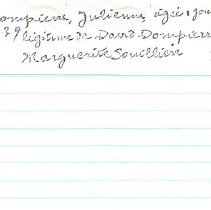 ompierre, Julienne agée 1 jou
29 légitime de David Dompierr
Marguerite Souillière